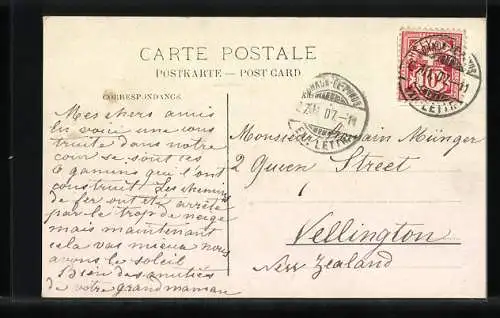 CARTE POSTALE
POSTKARTE – POST CARD
CORRESPONDANCE
Mes chers amis
En voici une cons
truite dans notre
cour ce sont les
6 gamins qui l'ont
construit. Les chemins
de fer ont été arrêté
par le trop de neige
mais maintenant
cela vas mieux nous
avons le soleil
Bien des amitiés
de votre grand maman
Monsieur Münger
2 Queen Street
Wellington
New Zealand
EXP. LETTR.